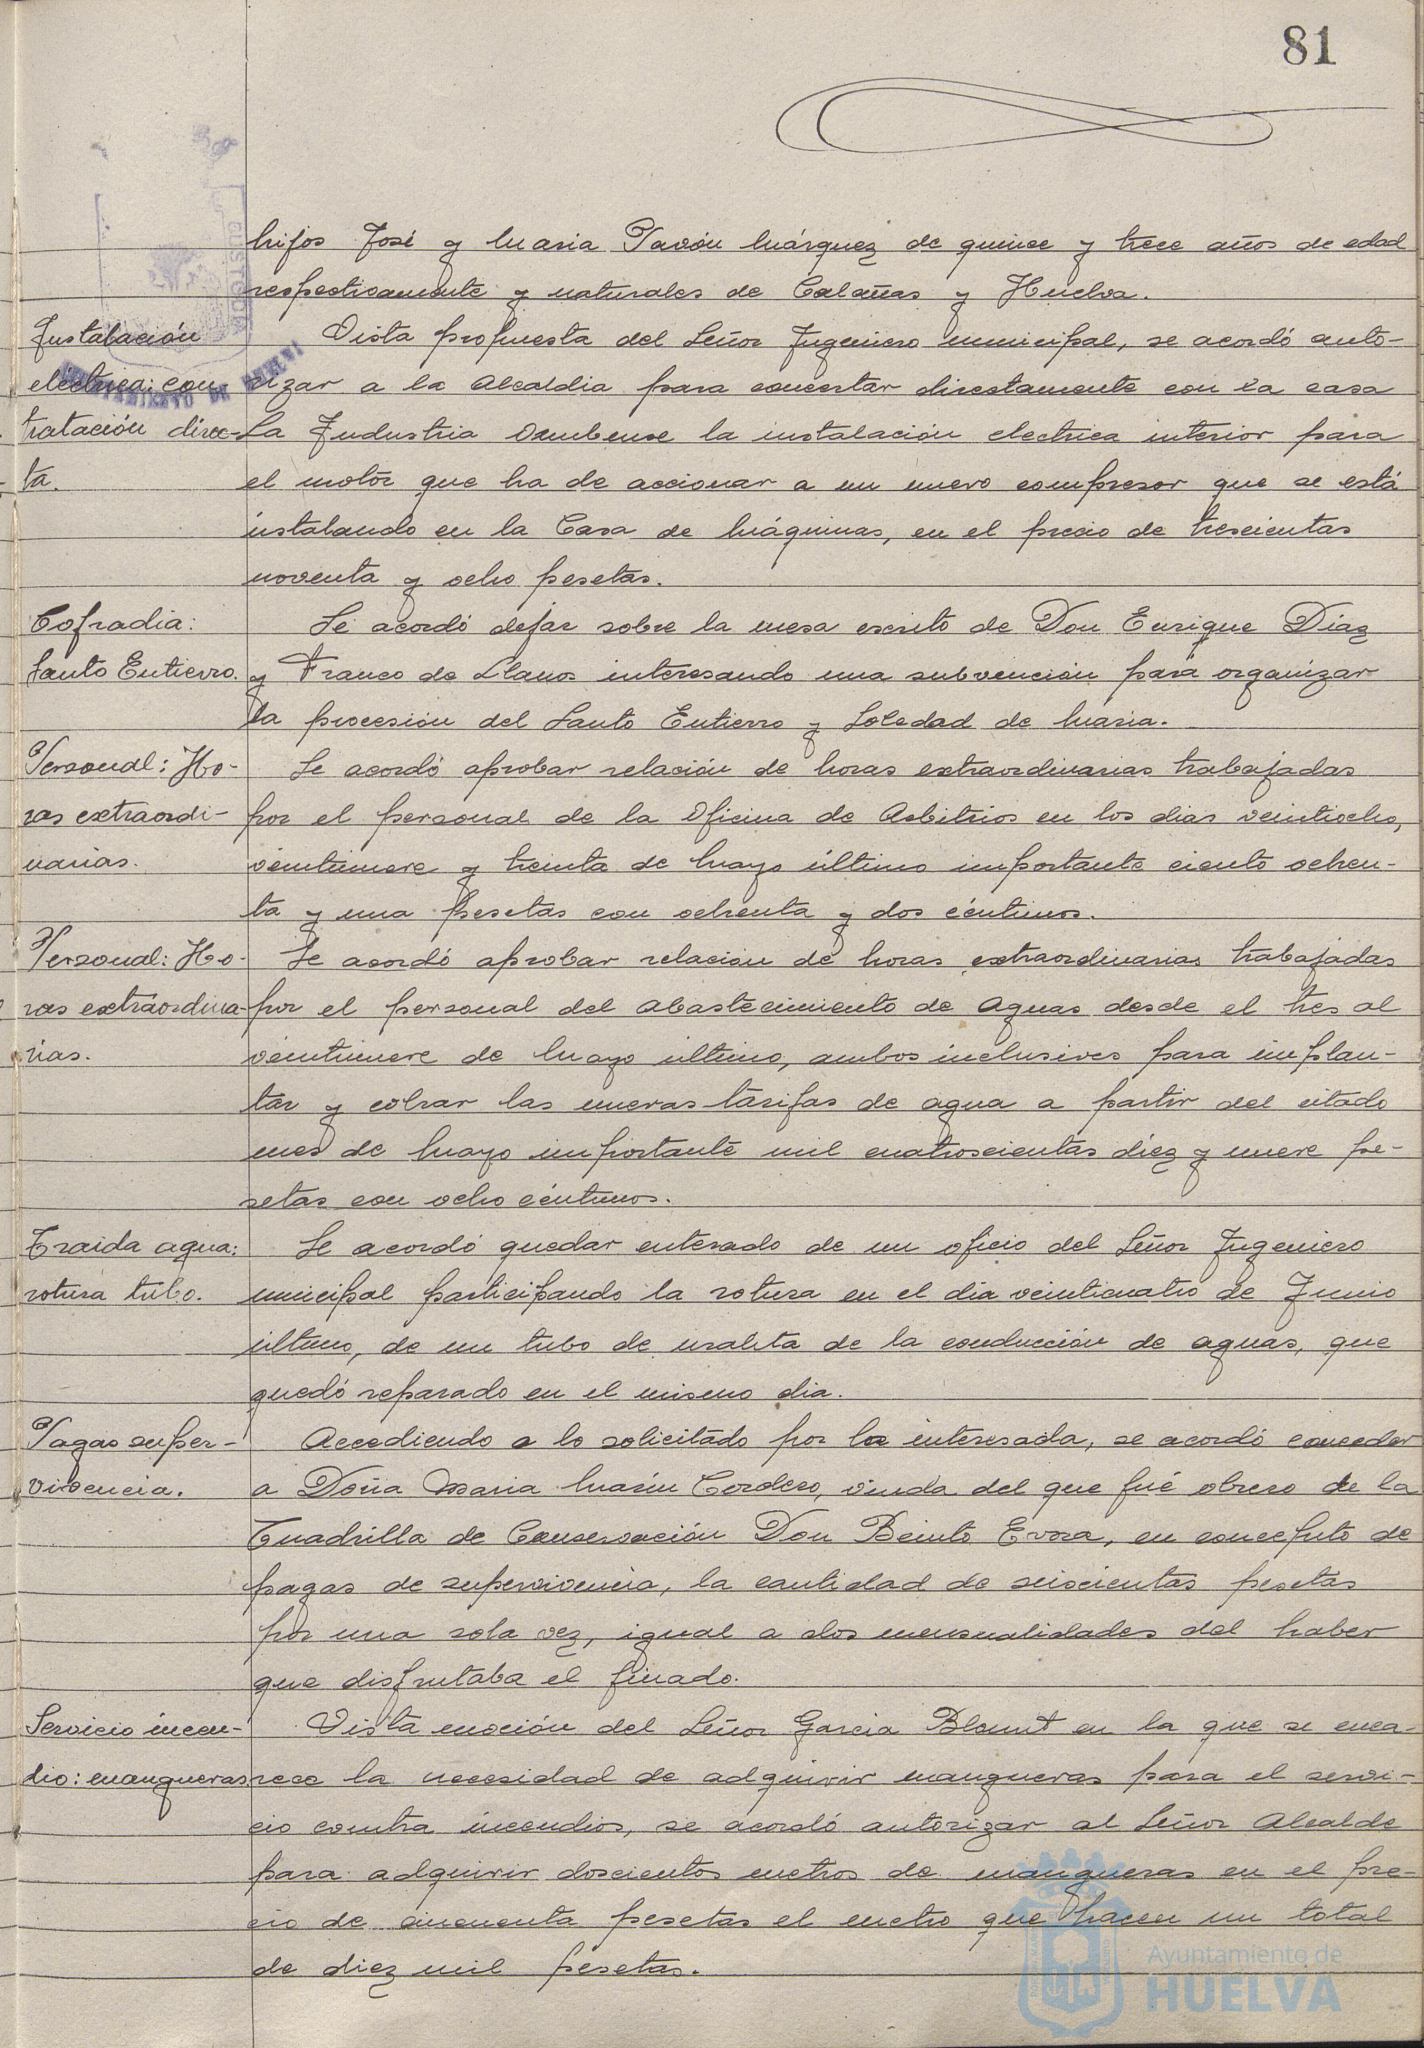 81
hijos José y Maria Pavón Márquez de quince y trece años de edad
respectivamente y naturales de Calañas y Huelva.
Instalación
electrica: con
tratación direc-
ta.
Vista propuesta del Señor Ingeniero municipal, se acordó auto-
rizar a la Alcaldia para concertar directamente con la casa
La Industria Onubense la instalación electrica interior para
el motor que ha de accionar a un nuevo compresor que se está
instalando en la Casa de Máquinas, en el precio de trescientas
noventa y ocho pesetas.
Cofradia:
Santo Entierro.
Se acordó dejar sobre la mesa escrito de Don Enrique Díaz
y Franco de Llanos interesando una subvención para organizar
la procesión del Santo Entierro y Soledad de Maria.
Personal: Ho-
ras extraordi-
narias.
Se acordó aprobar relación de horas extraordinarias trabajadas
por el personal de la Oficina de Arbitrios en los dias veintiocho,
veintinueve y treinta de Mayo último importante ciento ochen-
ta y una pesetas con ochenta y dos céntimos.
Personal: Ho-
ras extraordina-
rias.
Se acordó aprobar relación de horas extraordinarias trabajadas
por el personal del Abastecimiento de Aguas desde el tres al
veintinueve de Mayo último, ambos inclusives para implan-
tar y cobrar las nuevas tarifas de agua a partir del citado
mes de Mayo importante mil cuatroscientas diez y nueve pe-
setas con ocho céntimos.
Traida agua:
rotura tubo.
Se acordó quedar enterado de un oficio del Señor Ingeniero
municipal participando la rotura en el día veinticuatro de Junio
último, de un tubo de uralita de la conducción de aguas, que
quedó reparado en el mismo dia.
Pagas super-
vivencia.
Accediendo a lo solicitado por la interesada, se acordó conceder
a Doña Maria Marín Cordero, viuda del que fué obrero de la
Cuadrilla de Conservación Don Beinto Evora, en concepto de
pagas de supervivencia, la cantidad de seiscientas pesetas
por una sola vez, igual a dos mensualidades del haber
que disfrutaba el finado.
Servicio incen-
dio: mangueras
Vista moción del Señor Garcia Blaunt en la que se enca-
rece la necesidad de adquirir mangueras para el servi-
cio contra incendios, se acordó autorizar al Señor Alcalde
para adquirir doscientos metros de mangueras en el pre-
cio de cincuenta pesetas el metro que hacen un total
de diez mil pesetas.
Ayuntamiento de
HUELVA